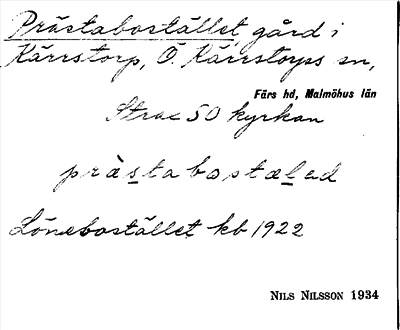 Prästabostället, gård i
Kärrstorp, Ö. Kärrstorps sn,
Färs hd, Malmöhus län
Strax SO kyrkan
pràstabostæled
Lönebostället kb 1922
NILS NILSSON 1934